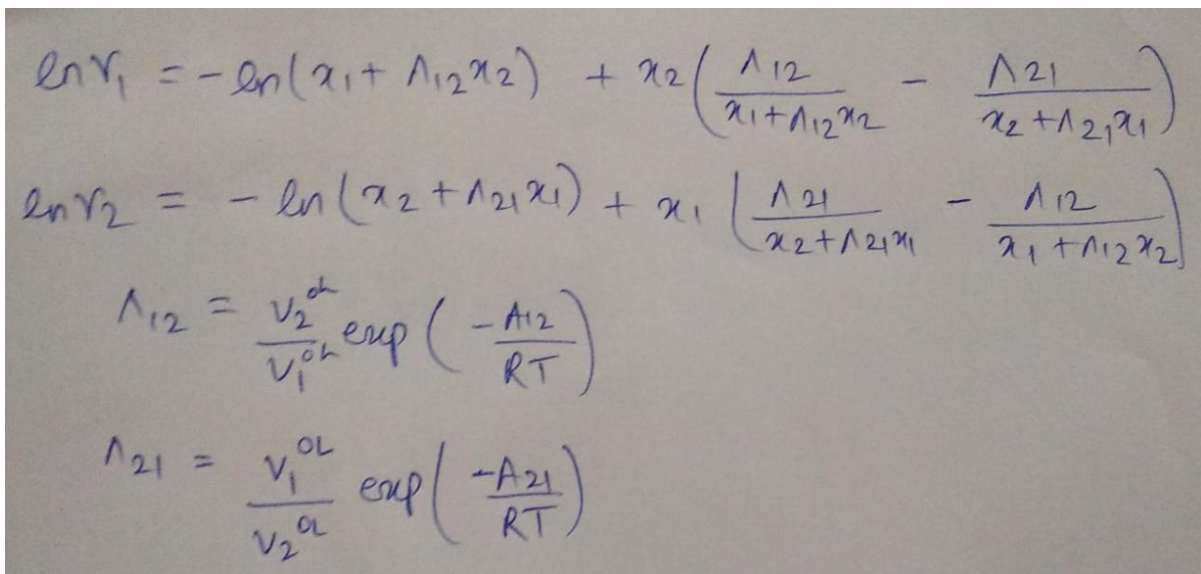 ln γ₁ = - ln(x₁ + Λ₁₂x₂) + x₂(Λ₁₂/(x₁ + Λ₁₂x₂) - Λ₂₁/(x₂ + Λ₂₁x₁))
ln γ₂ = - ln(x₂ + Λ₂₁x₁) + x₁(Λ₂₁/(x₂ + Λ₂₁x₁) - Λ₁₂/(x₁ + Λ₁₂x₂))
Λ₁₂ = V₂^OL/V₁^OL exp(-A₁₂/RT)
Λ₂₁ = V₁^OL/V₂^OL exp(-A₂₁/RT)